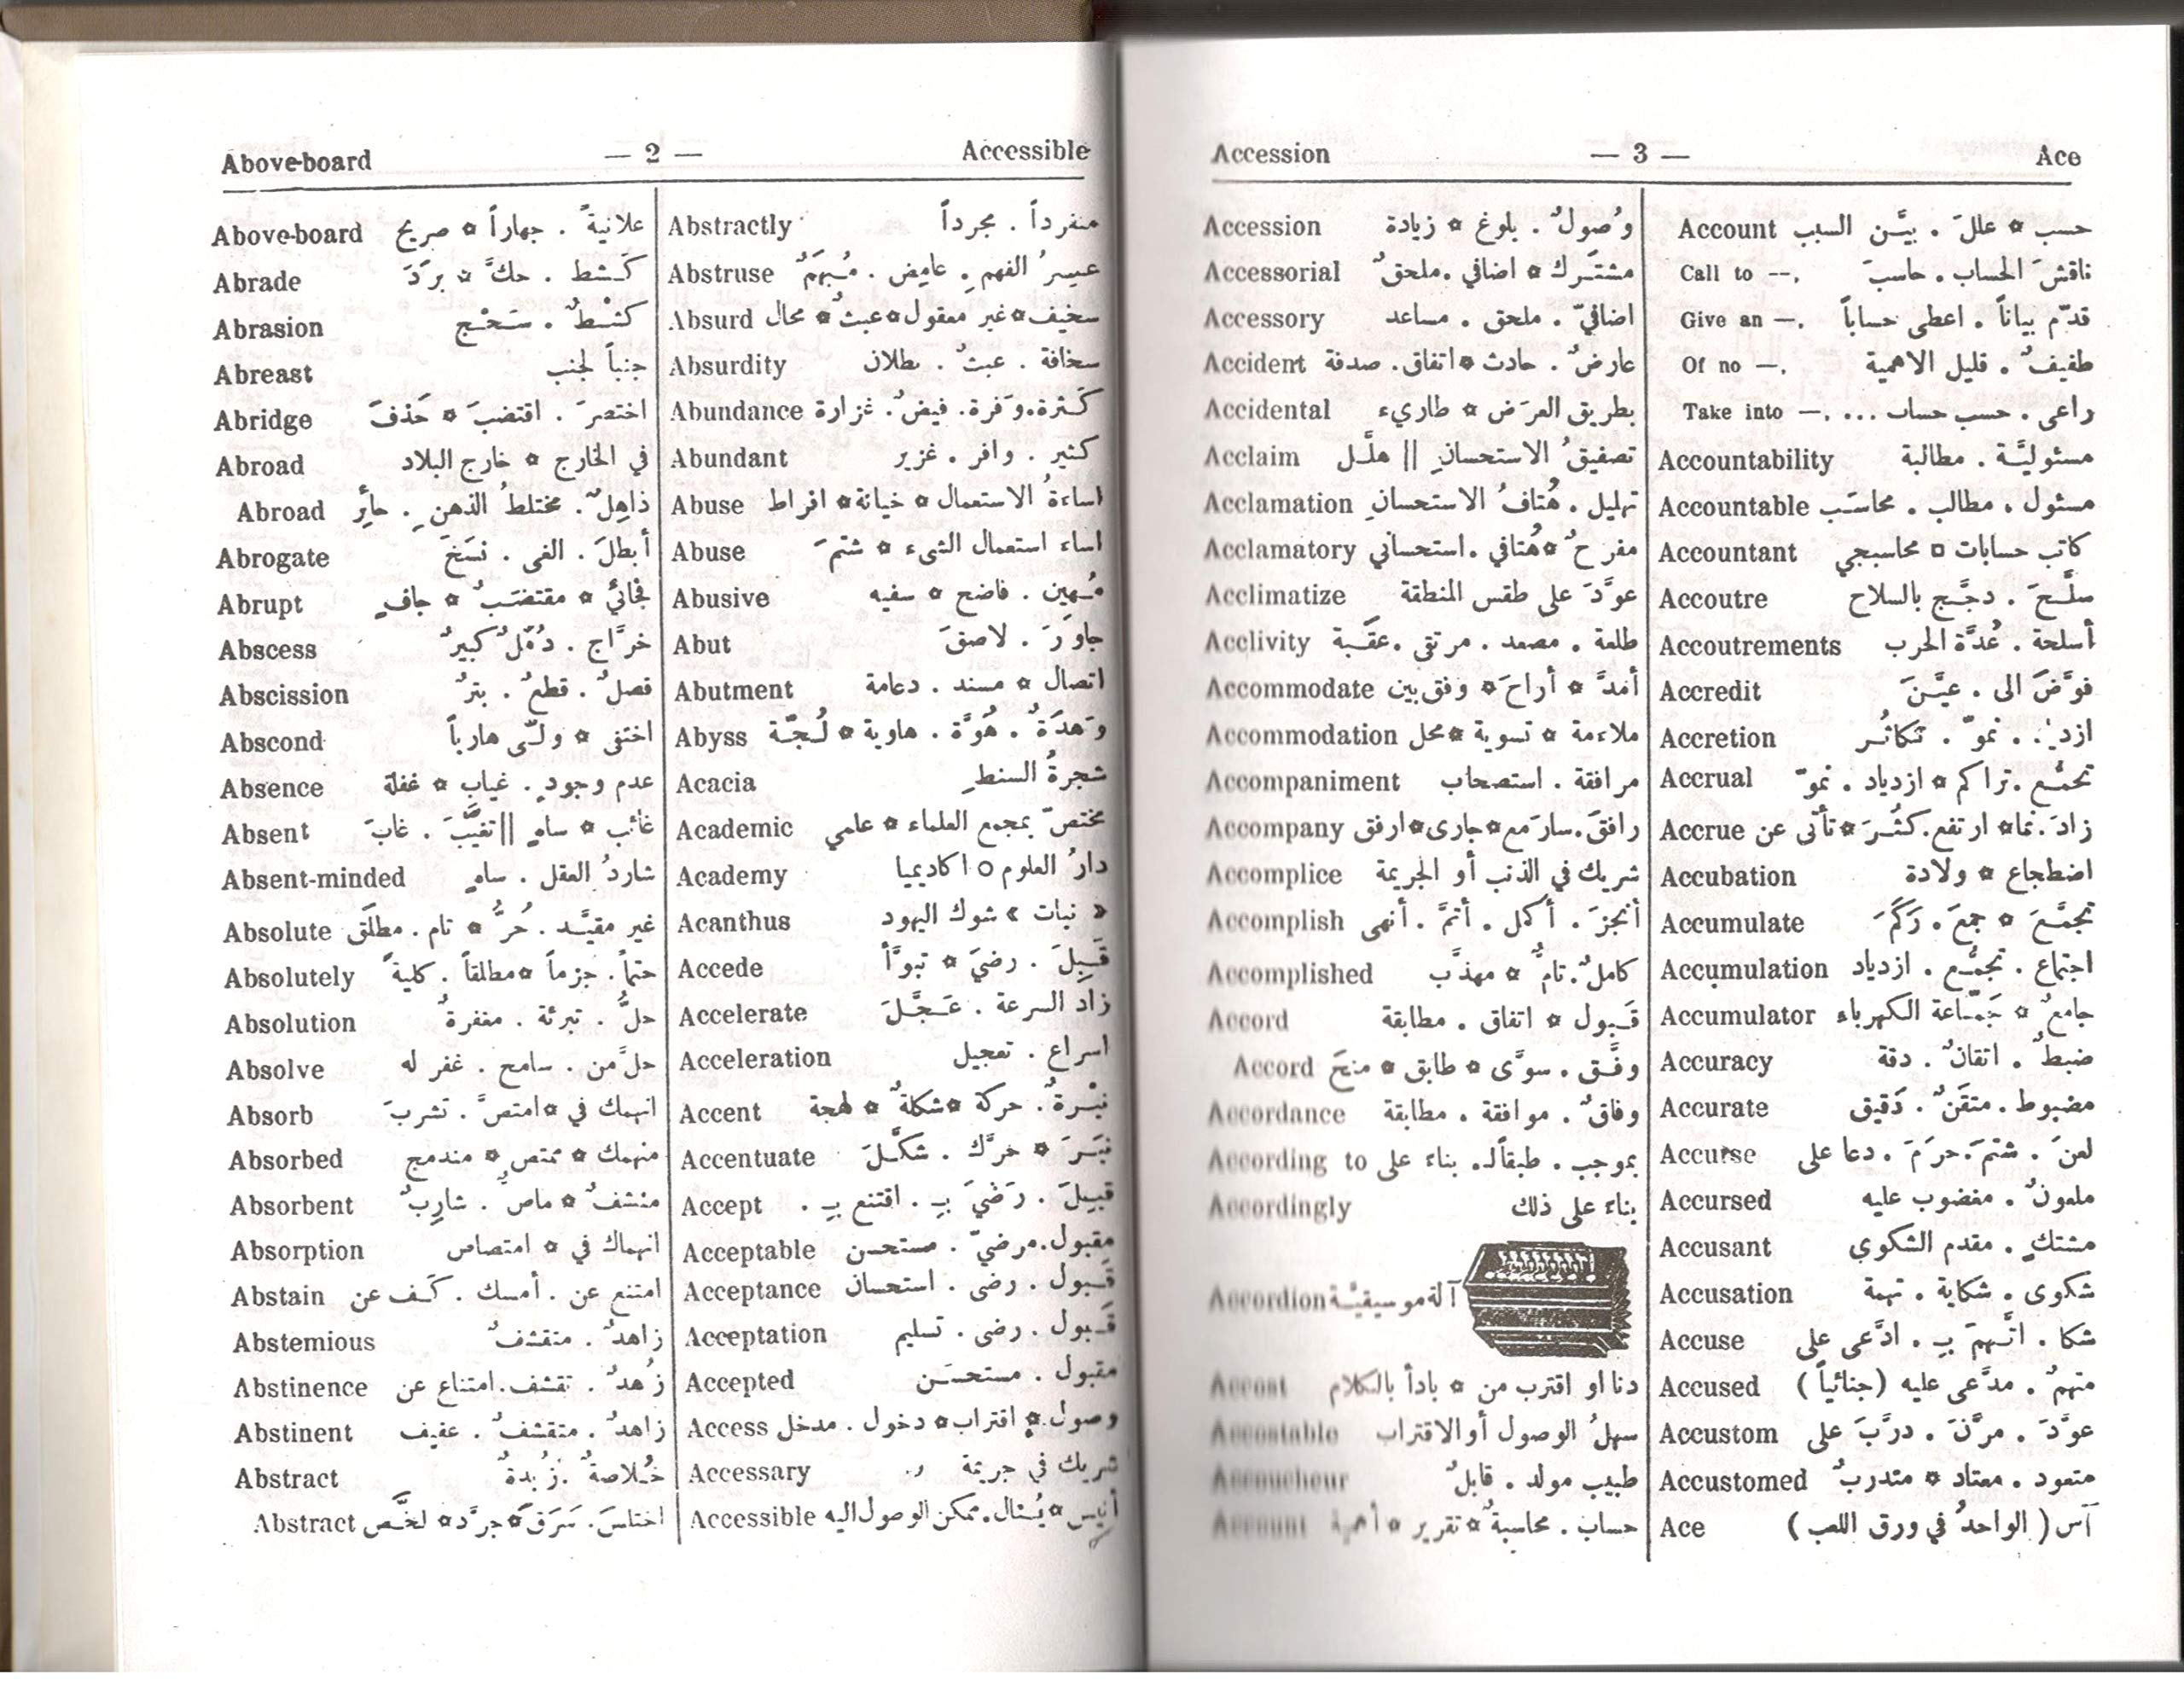 Above-board — 2 — Accessible
Above-board علانيةً . جهاراً ¤ صريح
Abrade كَشط . حكَّ ¤ برَدَ
Abrasion كشْطٌ . سَحْج
Abreast جنباً لجنب
Abridge اختصرَ . اقتضبَ ¤ حَذفَ
Abroad في الخارج ¤ خارج البلاد
Abroad ذاهِلٌ . مختلطُ الذهنِ . حائر
Abrogate أبطلَ . الغى . نسَخَ
Abrupt فجائيٌّ ¤ مقتضَبٌ ¤ جافٍ
Abscess خرَّاج . دُمّلٌ كبيرٌ
Abscission فصلٌ . قطعٌ . بترٌ
Abscond اختفى ¤ ولّى هارباً
Absence عدم وجودٍ . غياب ¤ غفلة
Absent غائب ¤ ساهٍ || تغيَّبَ . غابَ
Absent-minded شاردُ العقل . ساهٍ
Absolute غير مقيَّد . حُرٌّ ¤ تام . مطلَق
Absolutely حتماً . جزماً ¤ مطلقاً . كليةً
Absolution حلٌّ . تبرئة . مغفرةٌ
Absolve حلَّ من . سامح . غفر له
Absorb انهمك في ¤ امتصَّ . تشربَ
Absorbed منهمك ¤ ممتص ¤ مندمج
Absorbent منشفٌ ¤ ماصّ . شارِبٌ
Absorption انهماك في ¤ امتصاص
Abstain امتنع عن . أمسك . كَف عن
Abstemious زاهدٌ . متقشفٌ
Abstinence زُهدٌ . تقشف . امتناع عن
Abstinent زاهدٌ . متقشفٌ . عفيف
Abstract خُلاصةٌ . زُبدةٌ
Abstract اختلسَ . سَرَقَ ¤ جرَّد ¤ لخَّص
Abstractly منفرداً . مجرداً
Abstruse عسِرُ الفهمِ . غامِض . مُبهَمٌ
Absurd سخيف ¤ غير معقول ¤ عبثٌ ¤ محال
Absurdity سخافة . عبثٌ . بطلان
Abundance كَثرة . وَفرة . فيضٌ . غزارة
Abundant كثير . وافر . غزير
Abuse اساءةُ الاستعمال ¤ خيانة ¤ افراط
Abuse اساء استعمال الشيء ¤ شتمَ
Abusive مُهين . فاضح ¤ سفيه
Abut جاوَرَ . لاصقَ
Abutment اتصال ¤ مسند . دعامة
Abyss وَهدَةٌ . هُوَّة . هاوية ¤ لُجّة
Acacia شجرةُ السنطِ
Academic مختصّ بمجمع العلماء ¤ علمي
Academy دارُ العلوم ٥ اكاديميا
Acanthus « نبات » شوك اليهود
Accede قَبِلَ . رضيَ ¤ تبوَّأ
Accelerate زاد السرعة . عَجَّلَ
Acceleration اسراع . تعجيل
Accent نبْرةٌ . حركة ¤ شكلةٌ ¤ لهجة
Accentuate نبَرَ ¤ حرَّك . شكَّلَ
Accept قبِلَ . رَضيَ بِـ . اقتنع بِـ .
Acceptable مقبول . مرضيّ . مستحسن
Acceptance قَبول . رضى . استحسان
Acceptation قَبول . رضى . تسليم
Accepted مقبول . مستحسَن
Access وصول ¤ اقتراب ¤ دخول . مدخل
Accessary شريك في جريمة
Accessible أنيس ¤ يُنال . ممكن الوصول اليه
Accession — 3 — Ace
Accession وُصولٌ . بلوغ ¤ زيادة
Accessorial مشترَك ¤ اضافي . ملحقٌ
Accessory اضافيّ . ملحق . مساعد
Accident عارضٌ . حادث ¤ اتفاق . صدفة
Accidental بطريق العرَض ¤ طاريء
Acclaim تصفيقُ الاستحسانِ || هلَّل
Acclamation تهليل . هُتافُ الاستحسانِ
Acclamatory مفرحٌ ¤ هُتافي . استحساني
Acclimatize عوَّدَ على طقس المنطقة
Acclivity طلعة . مصعد . مرتقى . عقَبة
Accommodate أمدَّ ¤ أراحَ ¤ وفق بين
Accommodation ملاءمة ¤ تسوية ¤ محل
Accompaniment مرافقة . استصحاب
Accompany رافقَ . سارَ مع ¤ جارى ¤ ارفق
Accomplice شريك في الذنب أو الجريمة
Accomplish أنجزَ . أكمل . أتمَّ . أنهى
Accomplished كاملٌ . تامٌّ ¤ مهذَّب
Accord قَبول ¤ اتفاق . مطابقة
Accord وفَّق . سوَّى ¤ طابق ¤ منحَ
Accordance وفاقٌ . موافقة . مطابقة
According to بموجب . طبقاً لـ . بناء على
Accordingly بناءً على ذلك
Accordion آلة موسيقيَّة
Accost دنا او اقترب من ¤ بادأ بالكلام
Accostable سهلُ الوصول أو الاقتراب
Accoucheur طبيب مولد . قابلٌ
Account حساب . محاسبةٌ ¤ تقرير ¤ أهمية
Account حسب ¤ عللَ . بيَّن السبب
Call to —. ناقشَ الحساب . حاسبَ
Give an —. قدّم بياناً . اعطى حساباً
Of no —. طفيفٌ . قليل الاهمية
Take into —. راعى . حسب حساب ...
Accountability مسئوليَّة . مطالبة
Accountable مسئول . مطالب . محاسَب
Accountant كاتب حسابات ¤ محاسبجي
Accoutre سلَّحَ . دجَّج بالسلاح
Accoutrements أسلحة . عُدَّة الحرب
Accredit فوَّضَ الى . عيَّنَ
Accretion نموّ . تكاثُر
Accrual تجمُّع . تراكم ¤ ازدياد . نموّ
Accrue زادَ . نما ¤ ارتفع . كثُرَ ¤ تأتّى عن
Accubation اضطجاع ¤ ولادة
Accumulate تجمَّعَ ¤ جمعَ . رَكَمَ
Accumulation اجتماع . تجمُّع . ازدياد
Accumulator جامعٌ ¤ جَمّاعة الكهرباء
Accuracy ضبطٌ . اتقانٌ . دقة
Accurate مضبوط . متقَنٌ . دَقيق
Accurse لعنَ . شتَمَ . حرَمَ . دعا على
Accursed ملعونٌ . مغضوب عليه
Accusant مشتكٍ . مقدم الشكوى
Accusation شكوى . شكاية . تهمة
Accuse شكا . اتَّهمَ بِـ . ادَّعى على
Accused متهمٌ . مدَّعى عليه (جنائياً)
Accustom عوَّدَ . مرَّنَ . درَّبَ على
Accustomed متعود . معتاد ¤ متدربٌ
Ace آس ( الواحدُ في ورق اللعب )